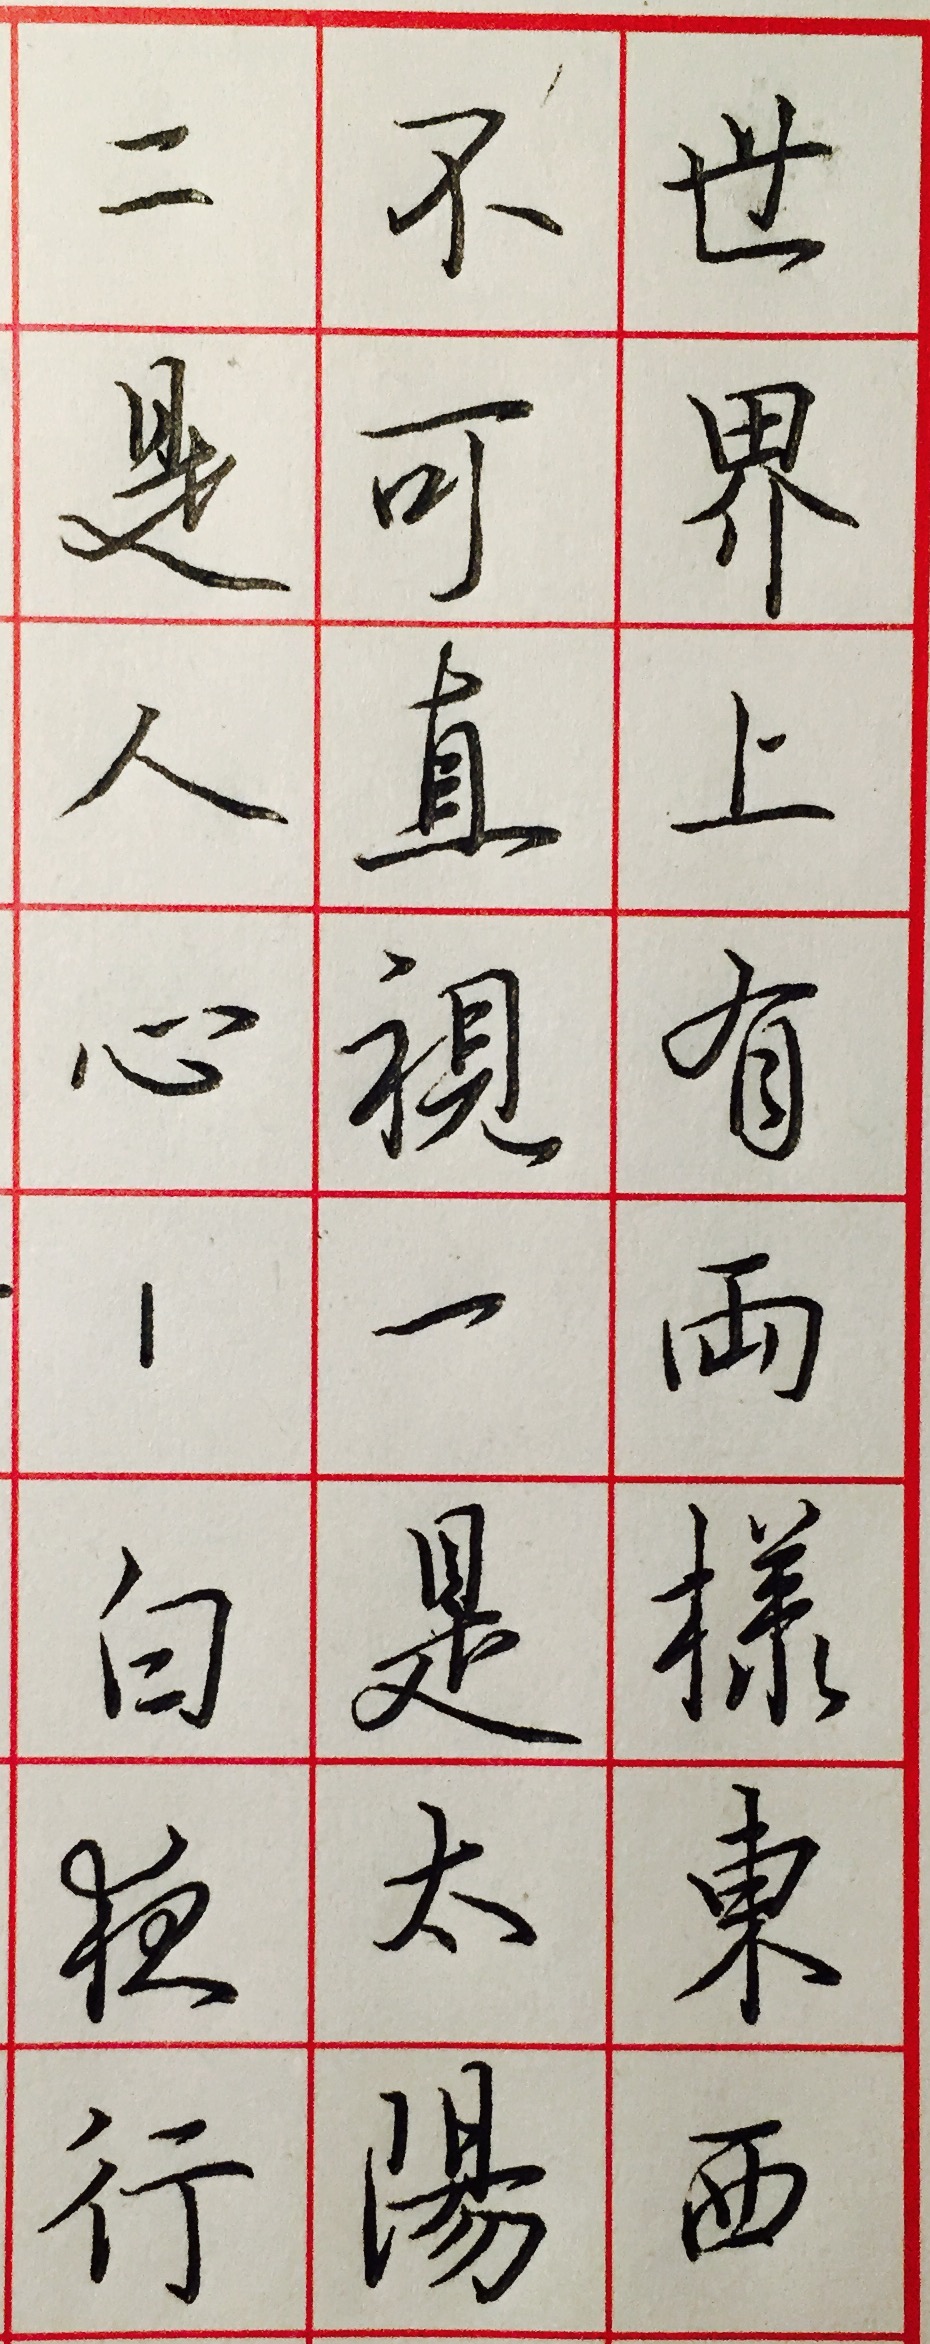 世界上有兩樣東西
不可直視一是太陽
二是人心｜白夜行